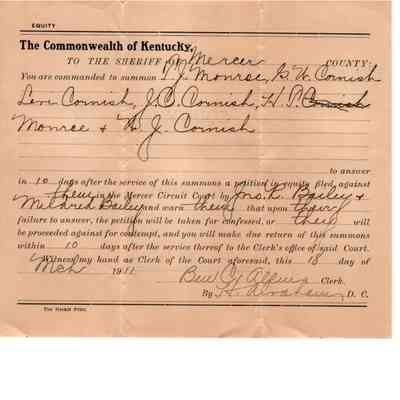 EQUITY
The Commonwealth of Kentucky,
TO THE SHERIFF OF Mercer COUNTY:
You are commanded to summon T. J. Monroe, G. W. Cornish
Levi Cornish, J. C. Cornish, H. P. Cornish
Monroe & W. J. Cornish
to answer
in 10 days after the service of this summons a petition in equity filed against
them in the Mercer Circuit Court by Jno. R. Bailey &
Mildred Bailey and warn them that upon their
failure to answer, the petition will be taken for confessed, or they will
be proceeded against for contempt, and you will make due return of this summons
within 10 days after the service thereof to the Clerk's office of said Court.
Witness my hand as Clerk of the Court aforesaid, this 18 day of
Mch 1911 Ben C. Allin Clerk.
By D. C.
The Herald Print.